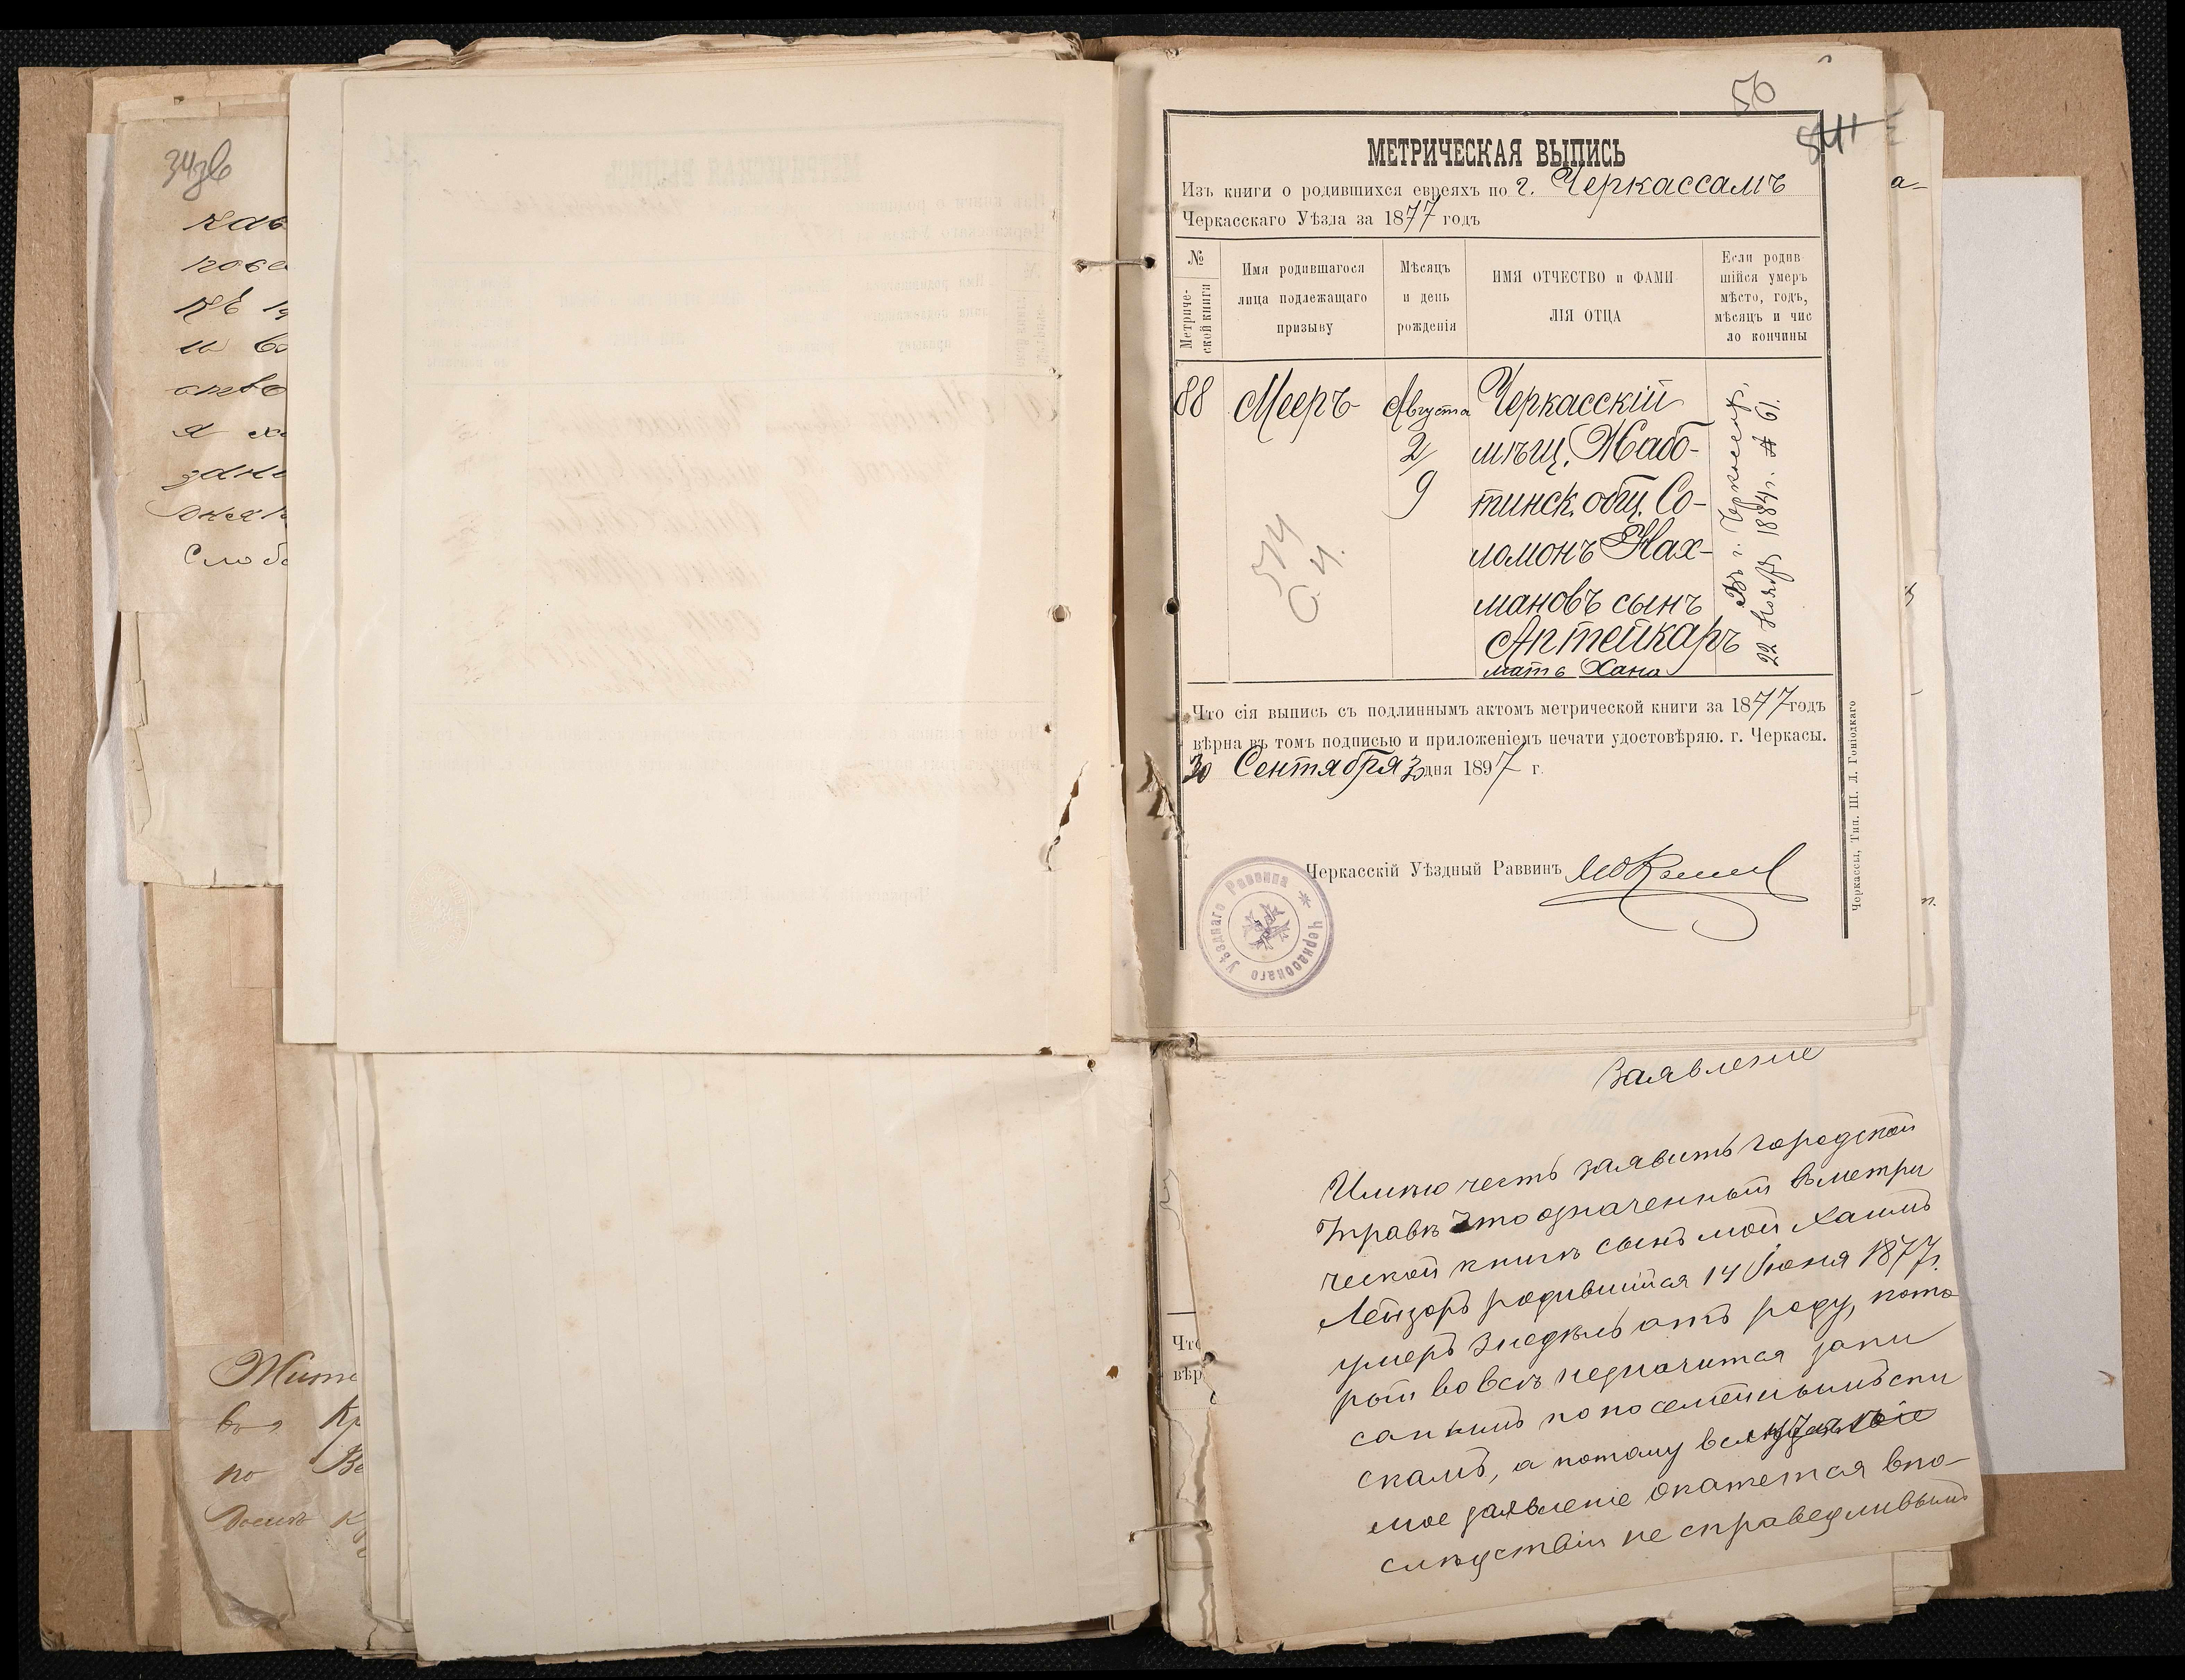 34
зв
50
МЕТРИЧЕСКАЯ ВЫПИСЬ
Изъ книги о родившихся евреяхъ по г. Черкассамъ
Черкасскаго Уѣзда за 1877 годъ
№ Метриче-ской книги
Имя родившагося лица подлежащаго призыву
Мѣсяцъ и день рожденія
ИМЯ ОТЧЕСТВО и ФАМИЛІЯ ОТЦА
Если родившійся умеръ мѣсто, годъ, мѣсяцъ и число кончины
88 Мееръ Августа Черкасскій
2/9 мѣщ. Жабо-
тинск. общ. Со-
ломонъ Нах-
мановъ сынъ
Аптейкаръ
мать Хана
Въ г. Черкассах.
22 Ноября 1884 г. № 61.
514
Что сія выпись съ подлиннымъ актомъ метрической книги за 1877 годъ
вѣрна въ томъ подписью и приложеніемъ печати удостовѣряю. г. Черкасы.
30 Сентября 30 дня 1897 г.
Черкасскій Уѣздный Раввинъ
Черкасскаго Уѣзднаго Раввина
Черкассы, Тип. Ш. Л. Гоніодкаго
Заявление
Имѣю честь заявить городской
Управѣ что означенный вметри
ческой книгѣ сынъ мой Хаимъ
Лейзоръ родившийся 14 Июня 1877 г.
умеръ 3 недѣль отъ роду, кото
рый вовсѣ незначится запи
саннымъ по посемейнымъ спи
скамъ, а потому
мое заявленіе окажется впо-
слѣдствіи не справедливымъ
Что
вѣр